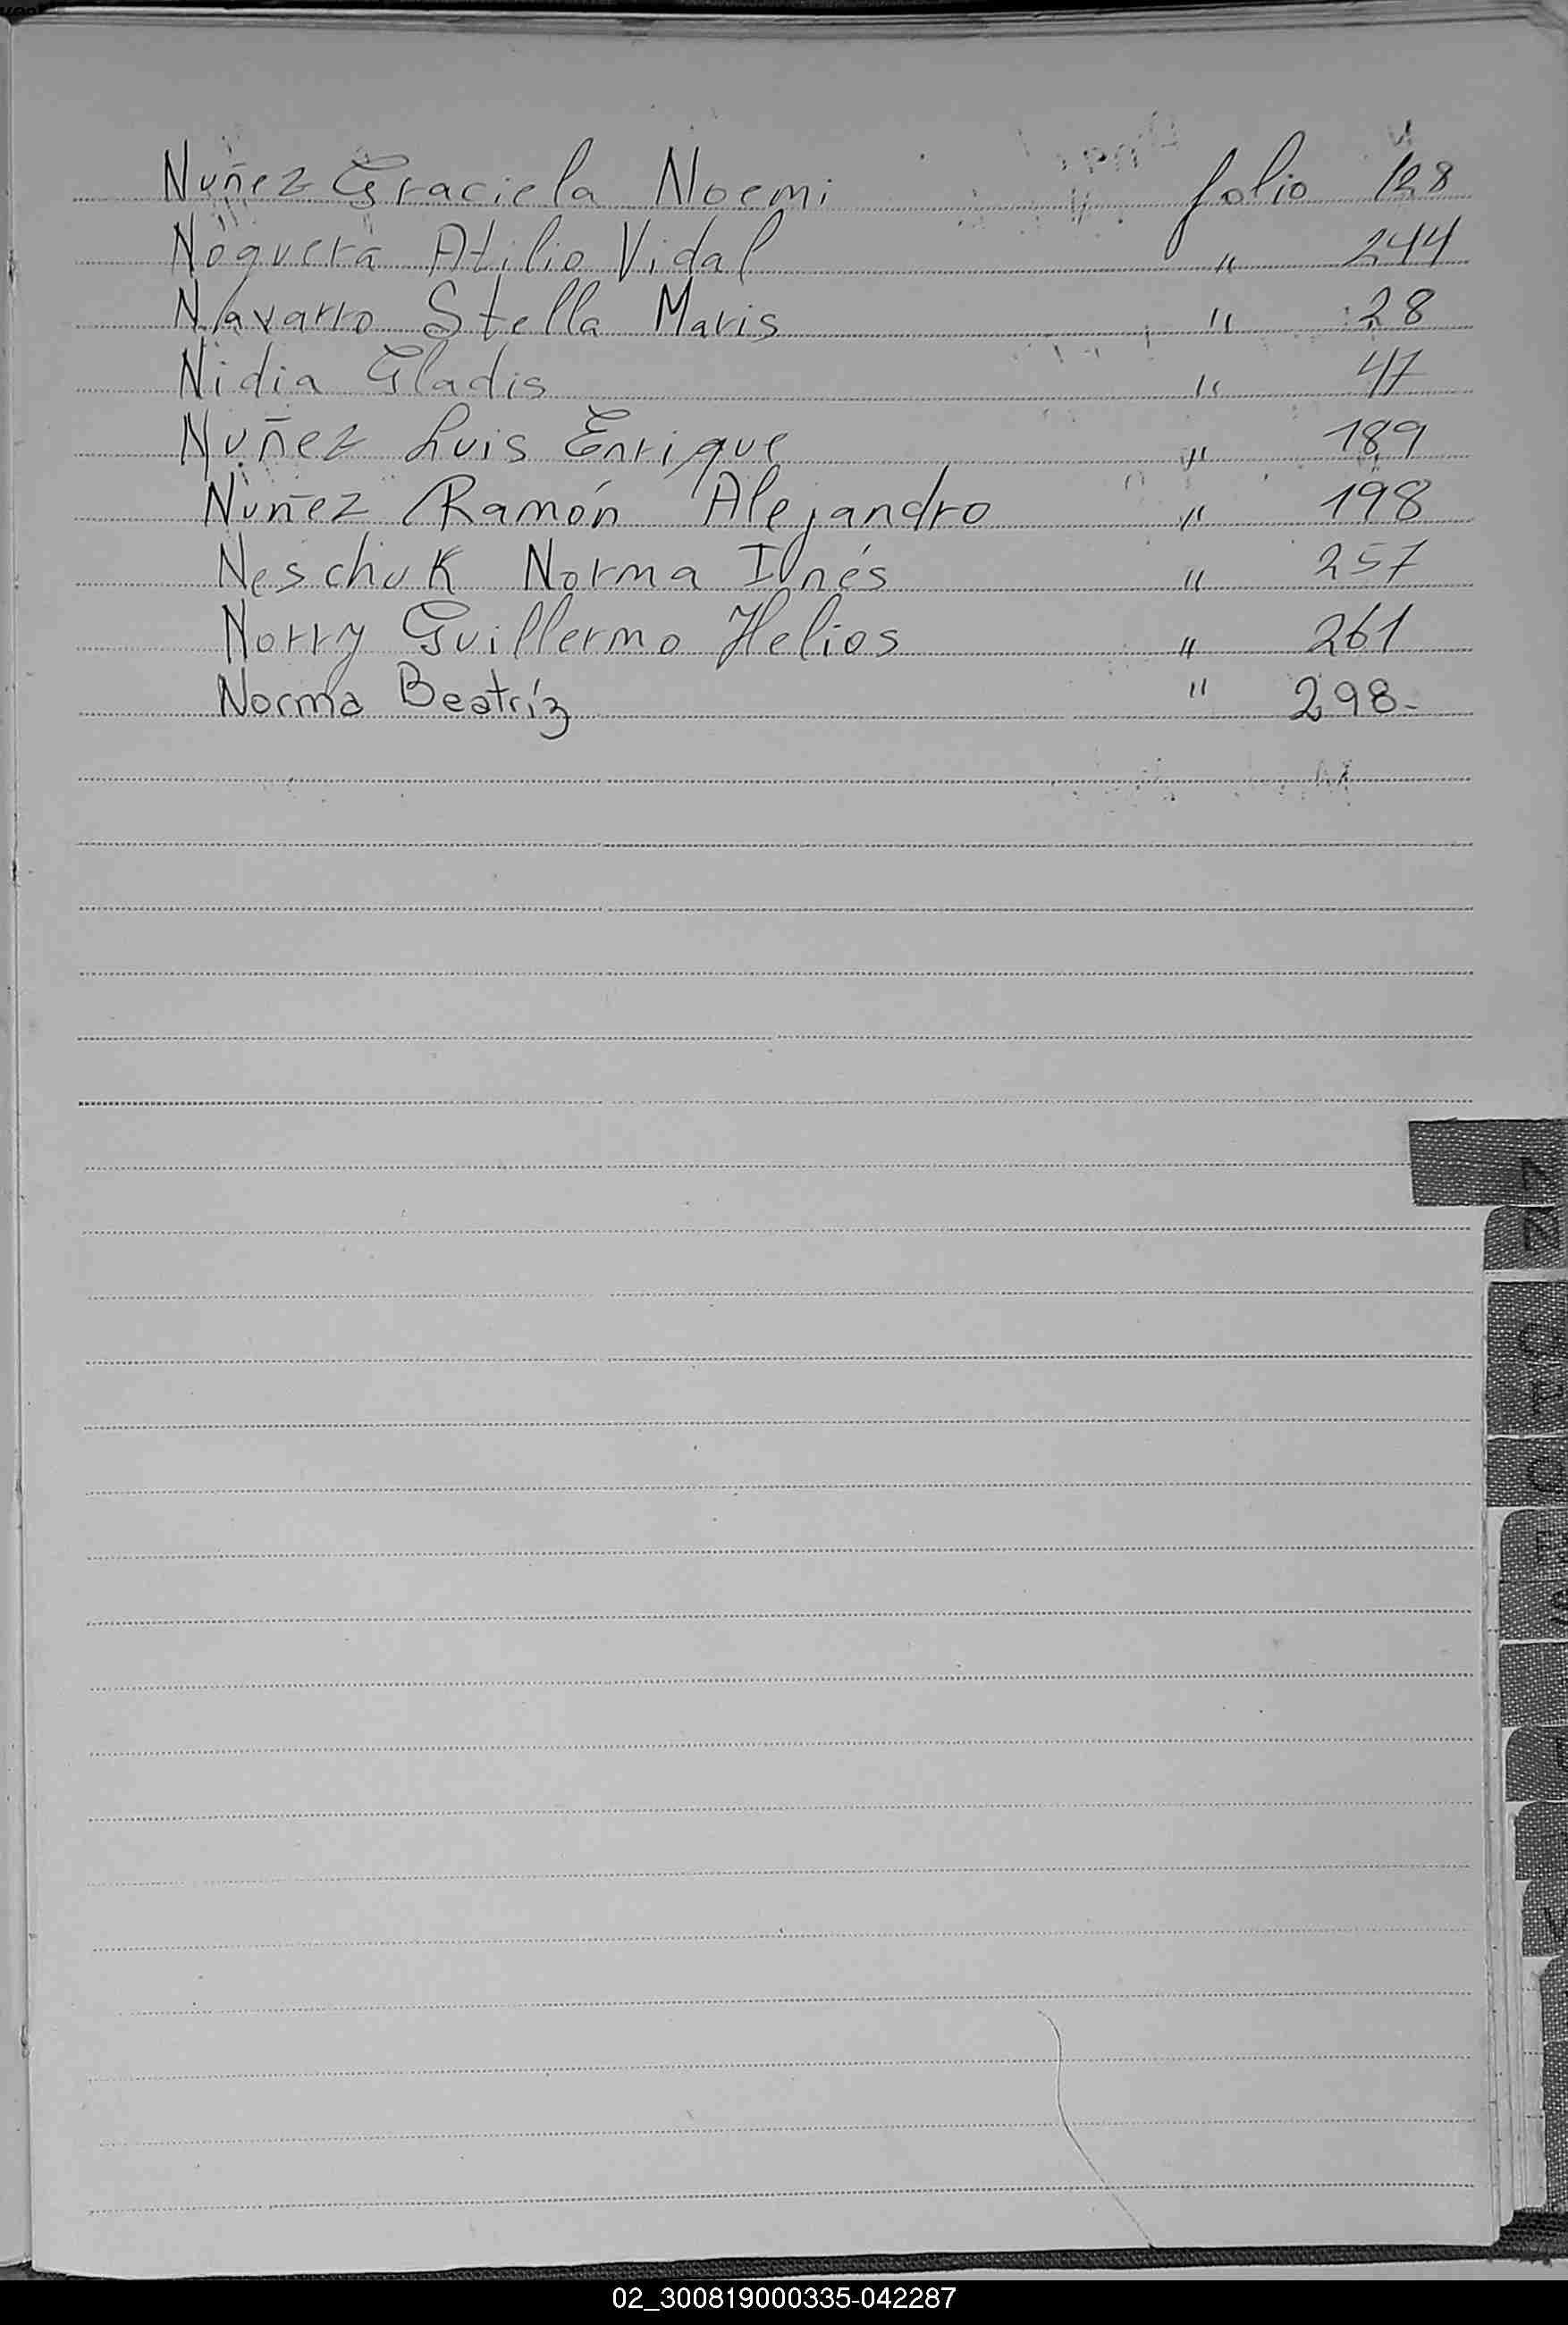 Nuñez Graciela Noemi folio 128
Noguera Atilio Vidal " 244
Navarro Stella Maris " 28
Nidia Gladis " 47
Nuñez Luis Enrique " 189
Nuñez Ramón Alejandro " 198
Neschuk Norma Inés " 257
Norry Guillermo Helios " 261
Norma Beatríz " 298-
02_300819000335-042287